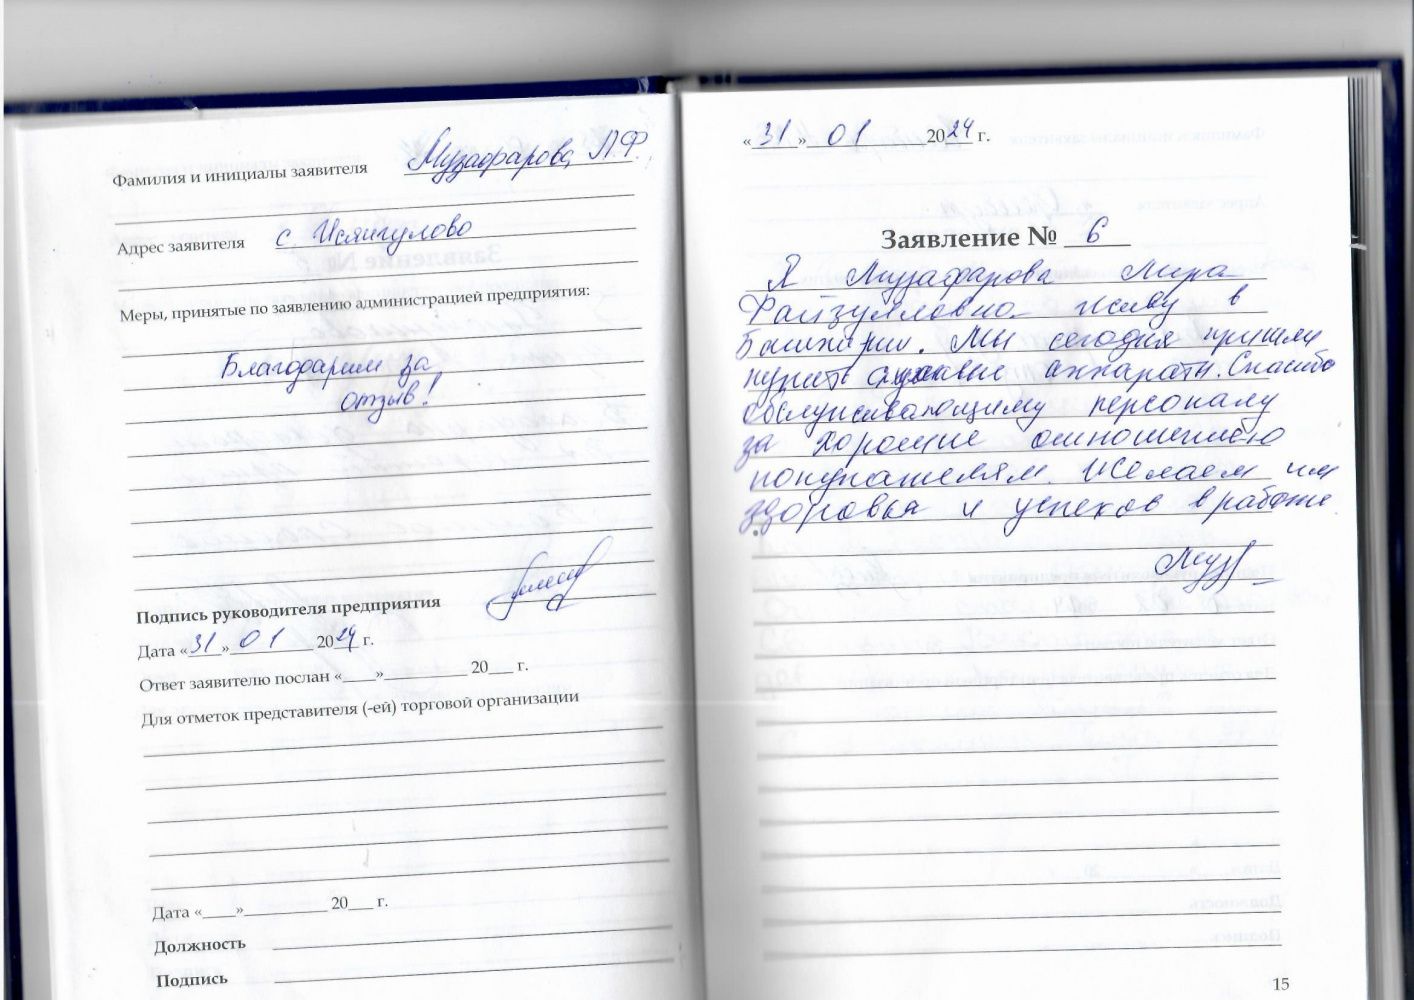 Фамилия и инициалы заявителя Музафарова Л.Ф.
Адрес заявителя с. Исянгулово
Меры, принятые по заявлению администрацией предприятия:
Благодарим за
отзыв!
Подпись руководителя предприятия
Дата «31» 01 2024 г.
Ответ заявителю послан «___»__________ 20___ г.
Для отметок представителя (-ей) торговой организации
Дата «____»__________ 20___ г.
Должность
Подпись
«31» 01 2024 г.
Заявление № 6
Я Музафарова Лира
Файзулловна живу в
Башкирии. Мы сегодня пришли
купить слуховые аппараты. Спасибо
обслуживающему персоналу
за хорошие отношению
покупателям. Желаем им
здоровья и успехов в работе.
Муз
15